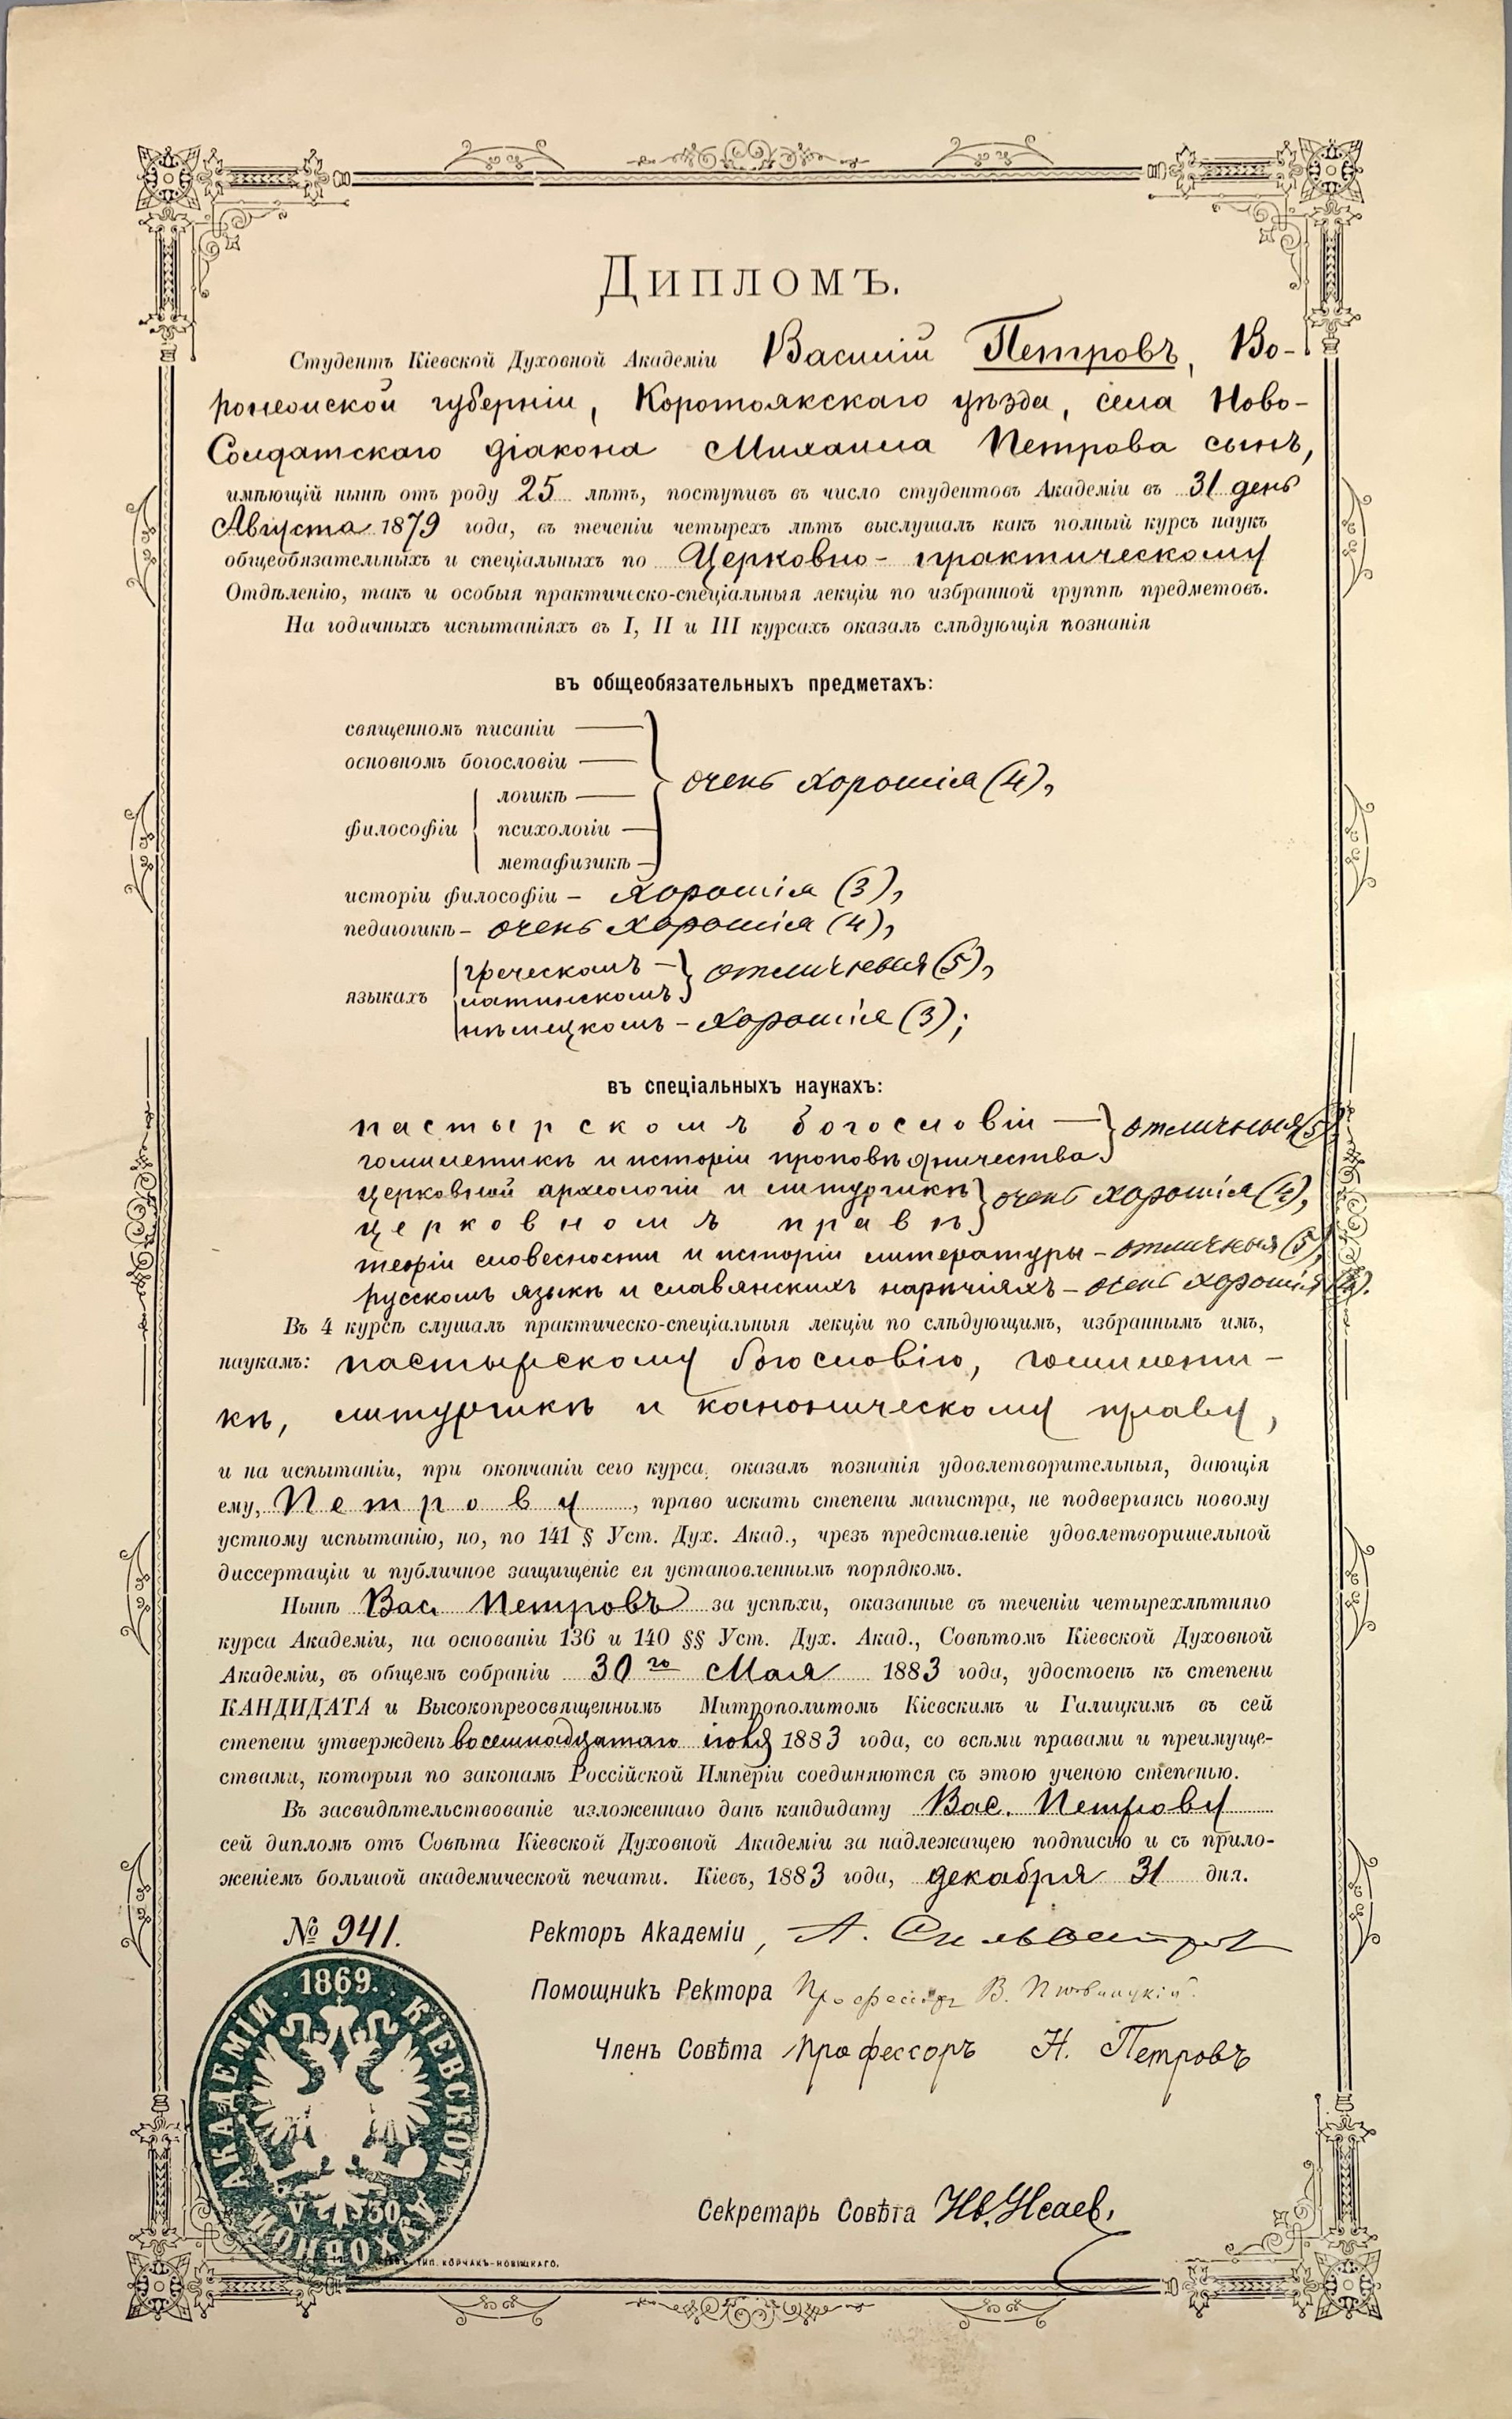 Дипломъ.
Студентъ Кіевской Духовной Академіи Василій Петровъ, Во-
ронежской губерніи, Коротоякскаго уѣзда, села Ново-
Солдатскаго діакона Михаила Петрова сынъ,
имѣющій нынѣ отъ роду 25 лѣтъ, поступивъ въ число студентовъ Академіи въ 31 день
Августа 1879 года, въ теченіи четырехъ лѣтъ выслушалъ какъ полный курсъ наукъ
общеобязательныхъ и спеціальныхъ по Церковно-практическому
Отдѣленію, такъ и особыя практическо-спеціальныя лекціи по избранной группѣ предметовъ.
На годичныхъ испытаніяхъ въ I, II и III курсахъ оказалъ слѣдующія познанія
въ общеобязательныхъ предметахъ:
священномъ писаніи —
основномъ богословіи —
логикѣ — очень хорошія (4),
философіи психологіи —
метафизикѣ —
исторіи философіи – хорошія (3),
педагогикѣ – очень хорошія (4),
греческомъ – отличныя (5),
языкахъ латинскомъ
нѣмецкомъ – хорошія (3);
въ спеціальныхъ наукахъ:
пастырскомъ богословіи — отличныя (5),
гомилетикѣ и исторіи проповѣдничества
церковной археологіи и литургикѣ очень хорошія (4),
церковномъ правѣ
теоріи словесности и исторіи литературы – отличныя (5),
русскомъ языкѣ и славянскихъ нарѣчіяхъ – очень хорошія (4).
Въ 4 курсѣ слушалъ практическо-спеціальныя лекціи по слѣдующимъ, избраннымъ имъ,
наукамъ: пастырскому богословію, гомилети-
кѣ, литургикѣ и каноническому праву,
и на испытаніи, при окончаніи сего курса, оказалъ познанія удовлетворительныя, дающія
ему, Петрову, право искать степени магистра, не подвергаясь новому
устному испытанію, но, по 141 § Уст. Дух. Акад., чрезъ представленіе удовлетворительной
диссертаціи и публичное защищеніе ея установленнымъ порядкомъ.
Нынѣ Вас. Петровъ за успѣхи, оказанные въ теченіи четырехлѣтняго
курса Академіи, на основаніи 136 и 140 §§ Уст. Дух. Акад., Совѣтомъ Кіевской Духовной
Академіи, въ общемъ собраніи 30го Мая 1883 года, удостоенъ къ степени
КАНДИДАТА и Высокопреосвященнымъ Митрополитомъ Кіевскимъ и Галицкимъ въ сей
степени утвержденъ восемнадцатаго 1883 года, со всѣми правами и преимуще-
ствами, которыя по законамъ Россійской Имперіи соединяются съ этою ученою степенью.
Въ засвидѣтельствованіе изложеннаго данъ кандидату Вас. Петрову
сей дипломъ отъ Совѣта Кіевской Духовной Академіи за надлежащею подписью и съ прило-
женіемъ большой академической печати. Кіевъ, 1883 года, декабря 31 дня.
№ 941.
Ректоръ Академіи, А. Сильвестръ
Помощникъ Ректора Профессоръ В. Пѣвницкій.
Членъ Совѣта профессоръ Н. Петровъ
Секретарь Совѣта Ив. Исаев
1869.
КІЕВСКОЙ ДУХОВНОЙ АКАДЕМІИ
ТИП. КОРЧАКЪ-НОВИЦКАГО.